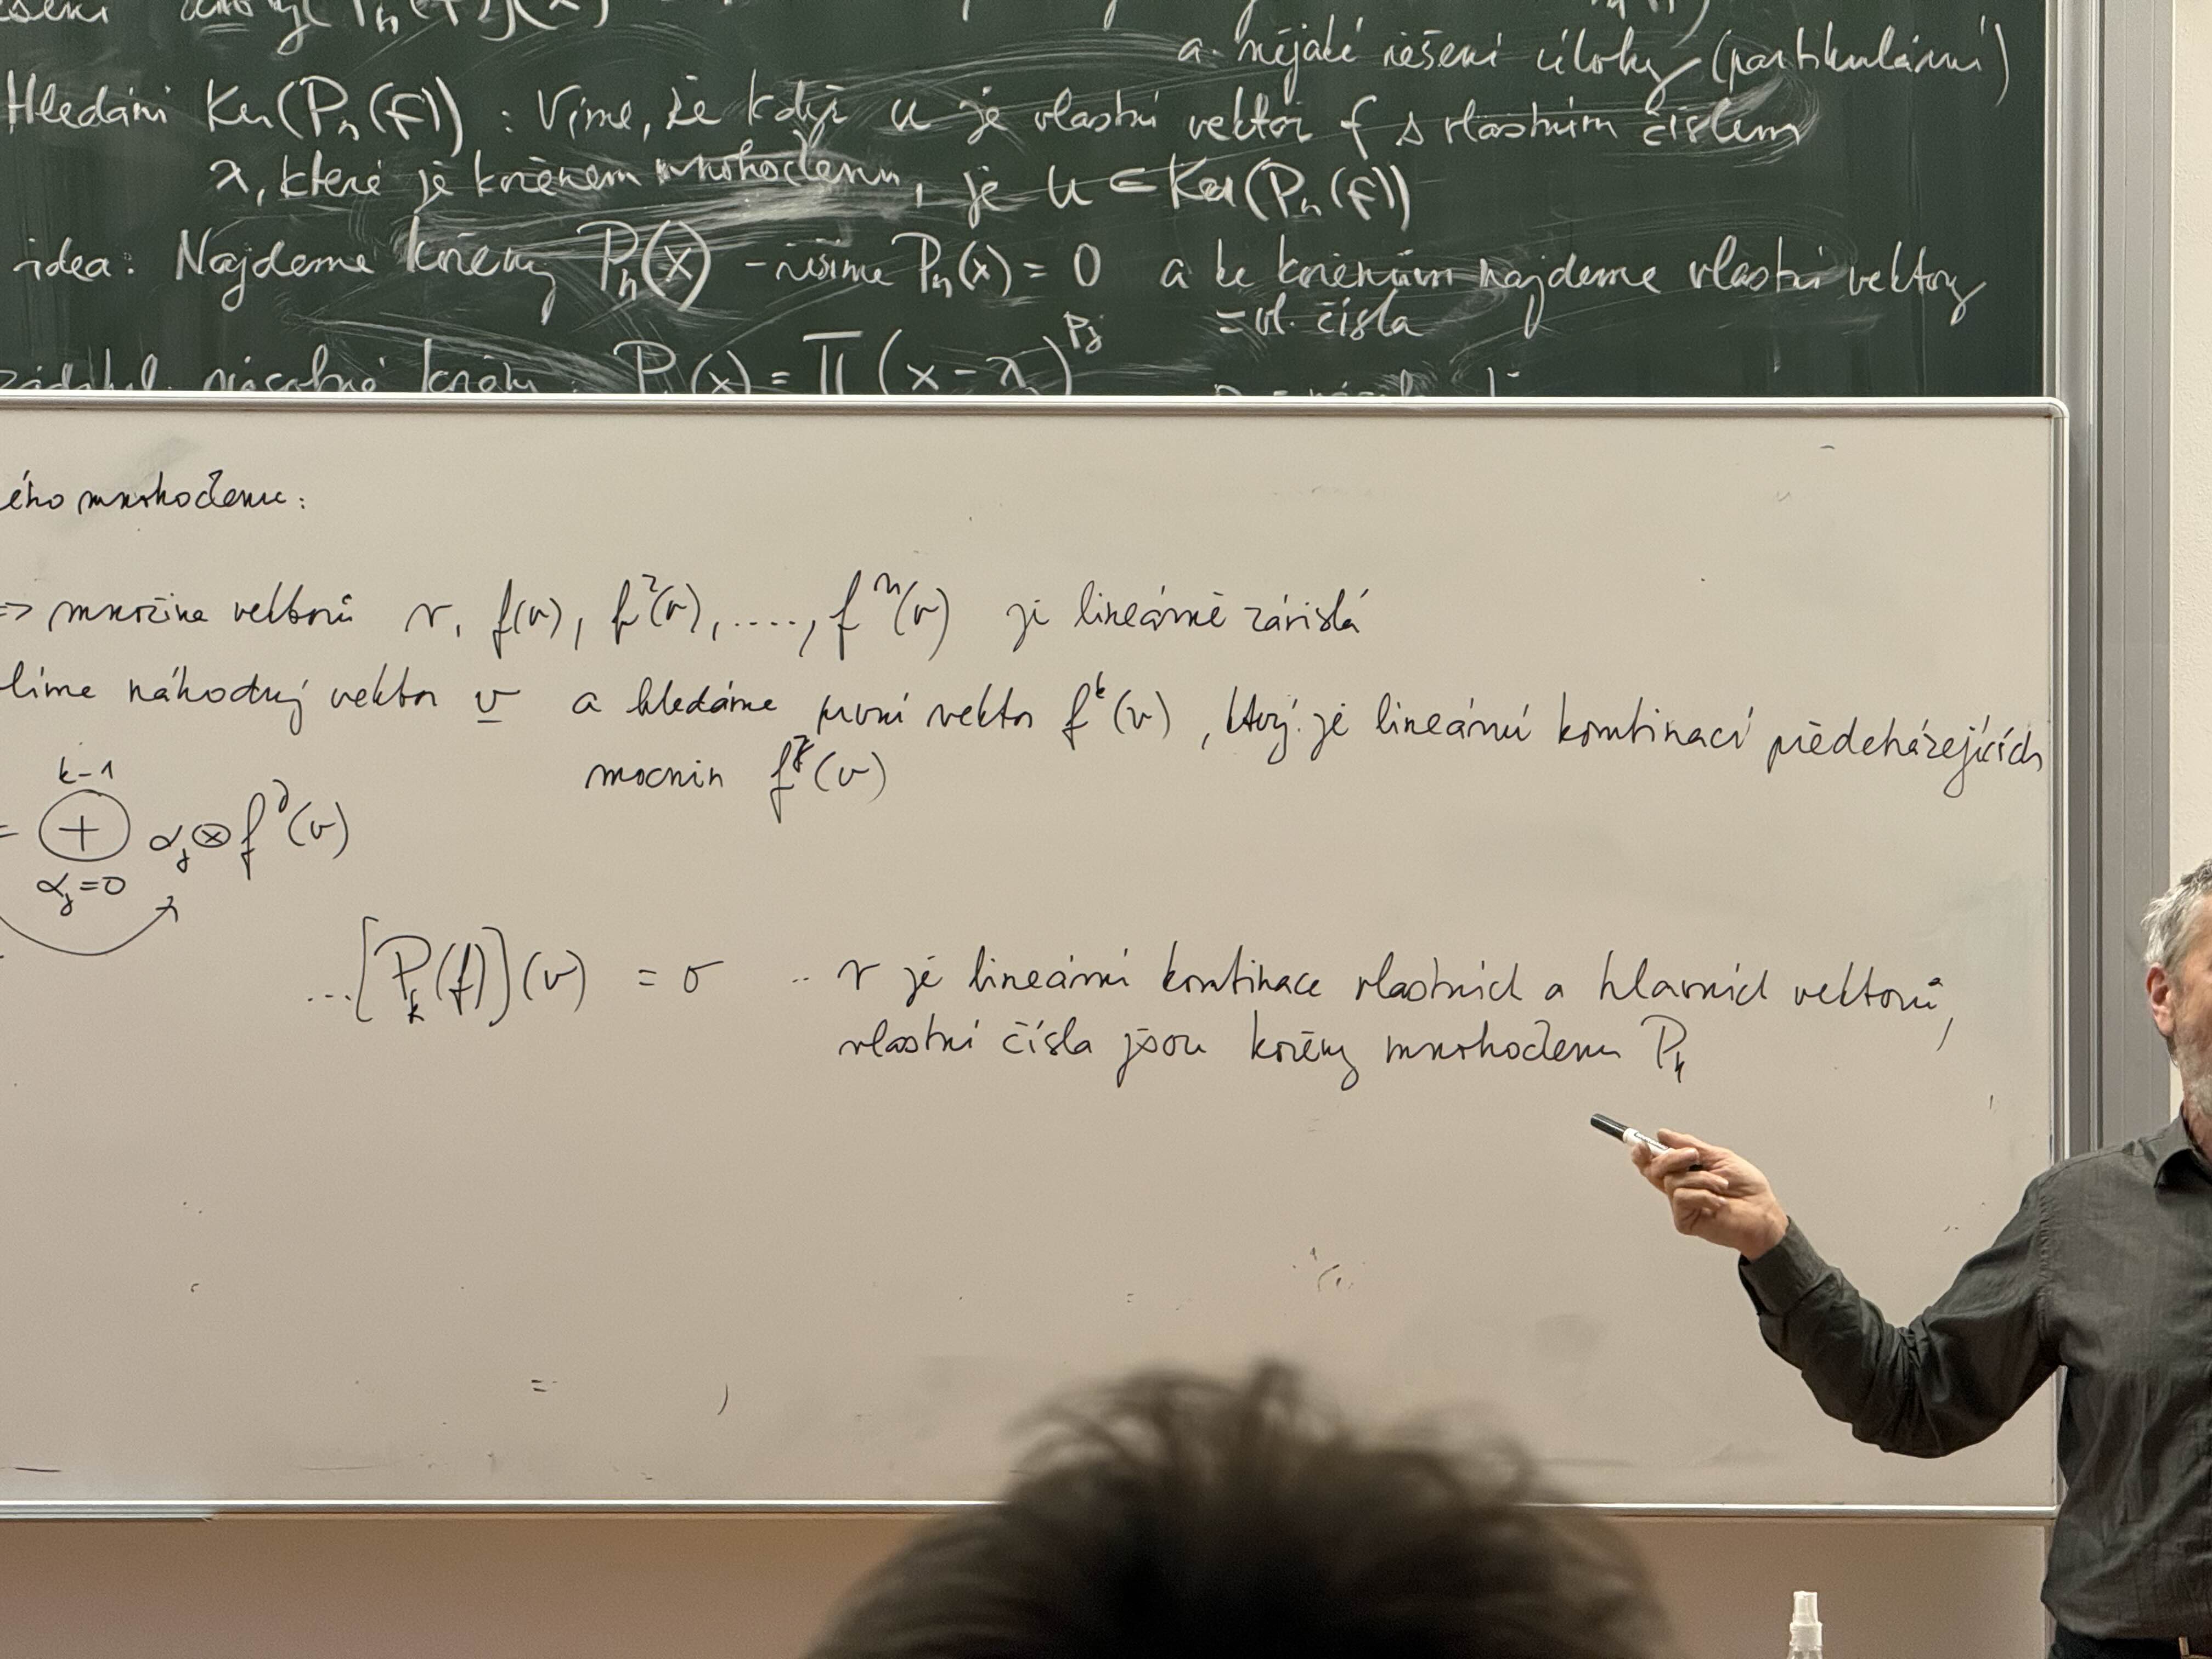 a nějaké řešení úlohy (partikulární)
Hledání Ker(Pₙ(f)) : Víme, že když u je vlastní vektor f s vlastním číslem
λ, které je kořenem mnohočlenu, je u ∈ Ker(Pₙ(f))
idea: Najdeme kořeny Pₙ(x) - řešíme Pₙ(x) = 0 a ke kořenům najdeme vlastní vektory
= vl. čísla
P (x) = Π (x - λ )^pⱼ
ého mnohočlenu:
=> množina vektorů v, f(v), f²(v), ...., fⁿ(v) je lineárně závislá
líme náhodný vektor v a hledáme první vektor fᵏ(v), který je lineární kombinací předcházejících
mocnin fʲ(v)
k-1
= ⊕ αⱼ ⊗ fʲ(v)
αⱼ=0
...[Pₖ(f)](v) = σ .. v je lineární kombinace vlastních a hlavních vektorů,
vlastní čísla jsou kořeny mnohočlenu Pₖ